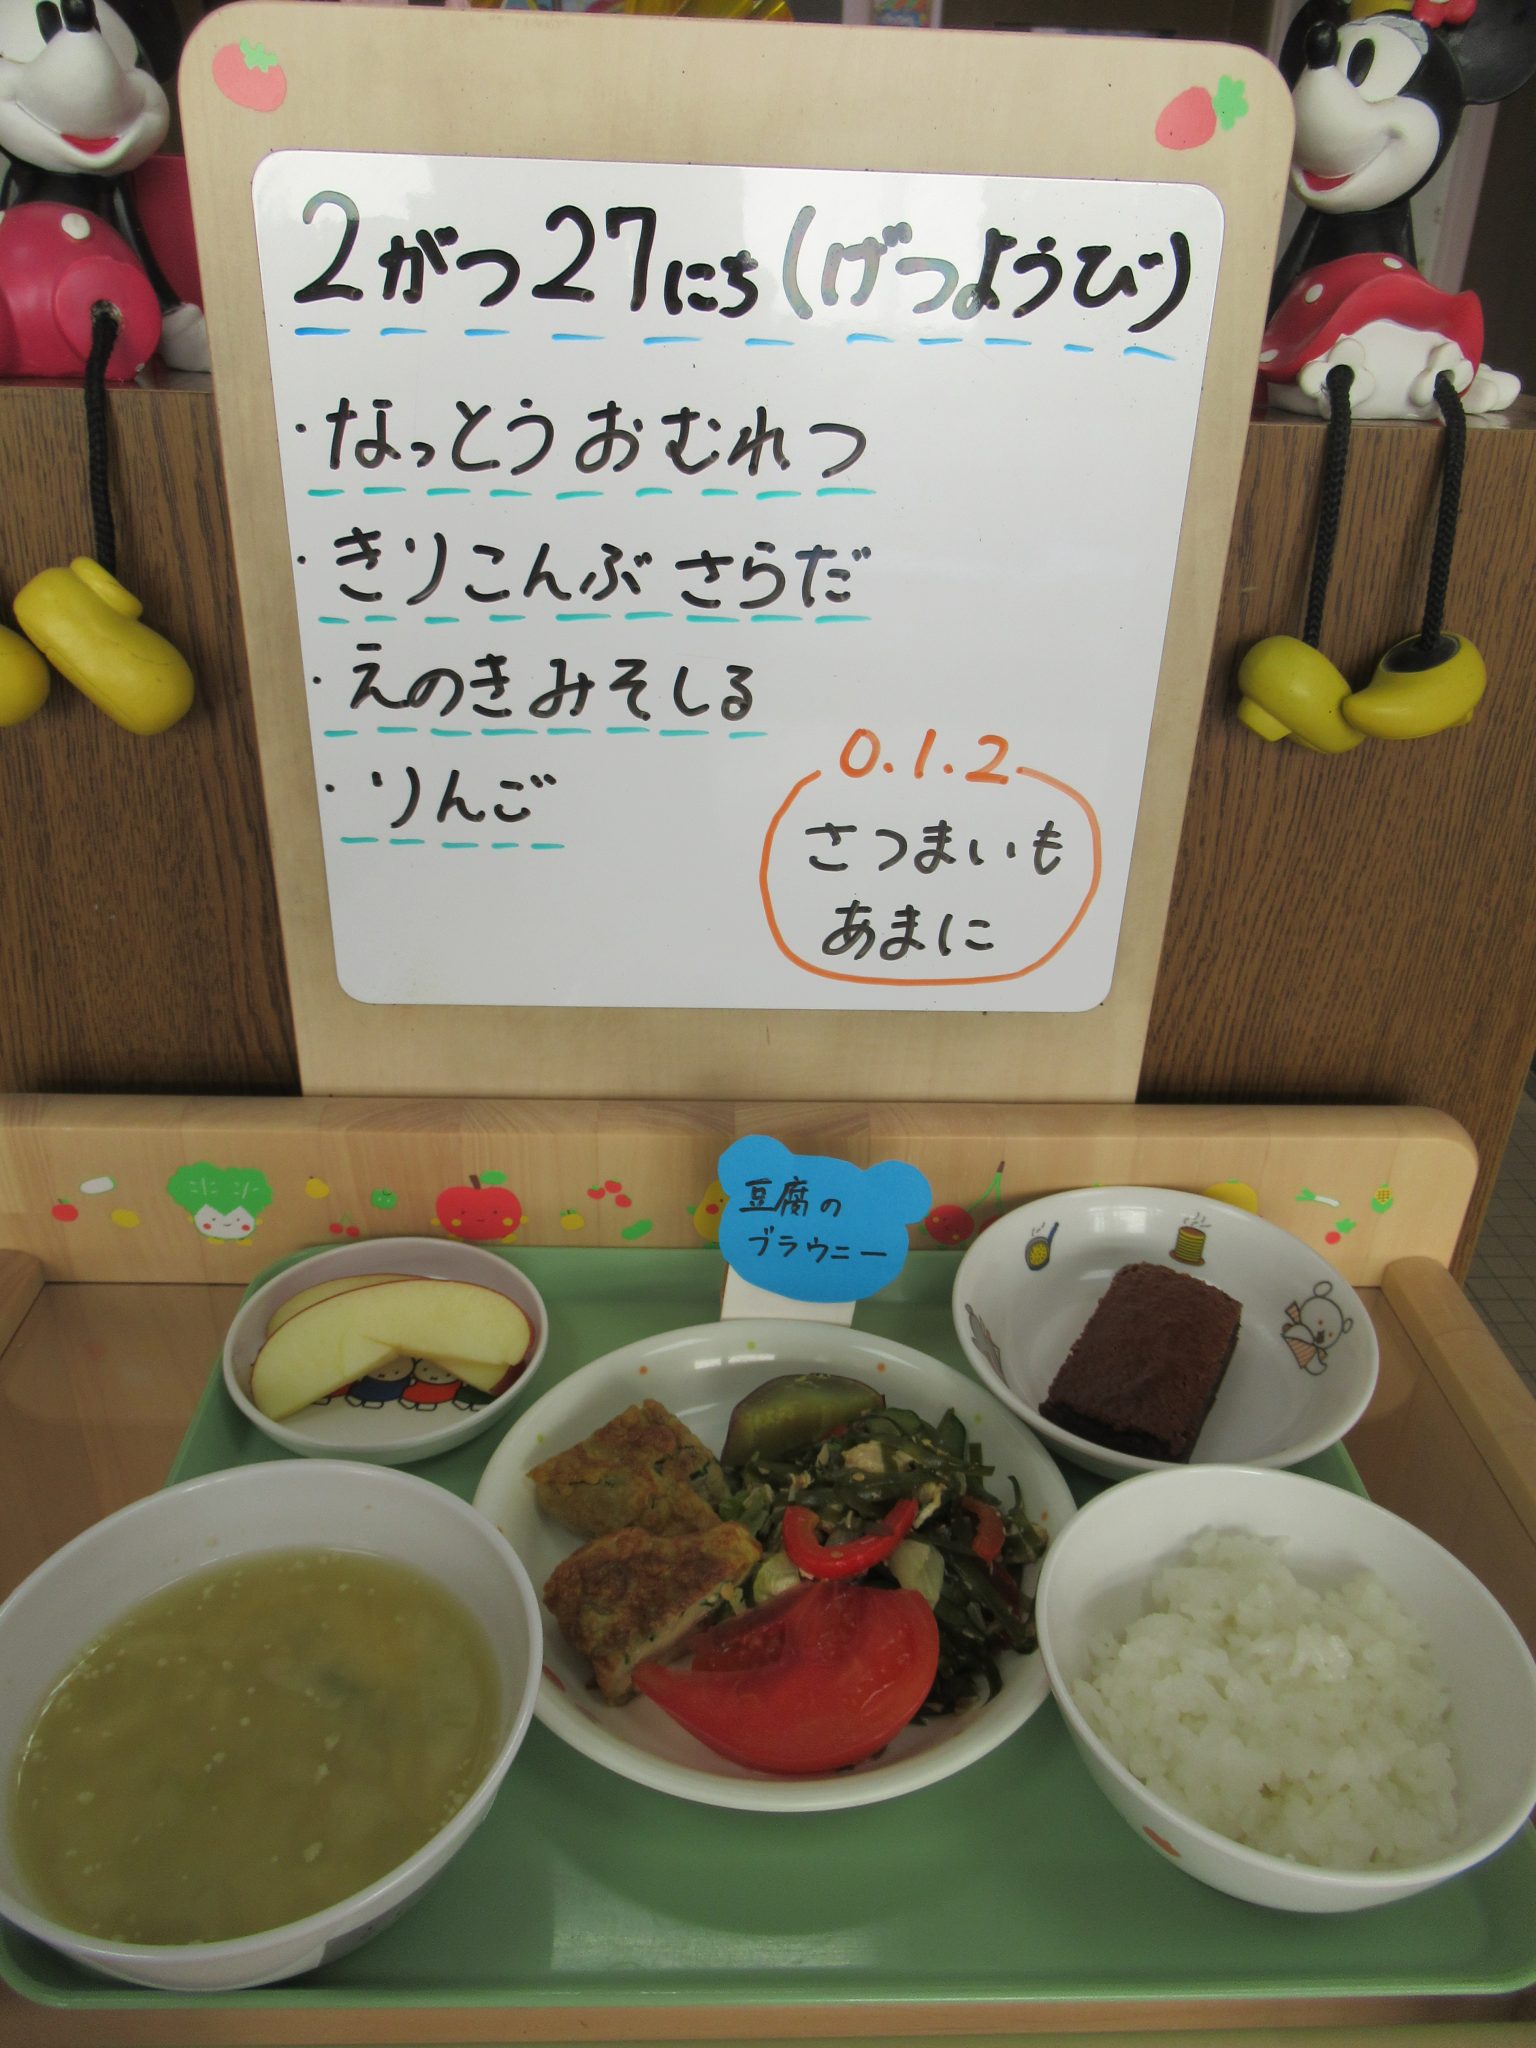 2がつ27にち(げつようび)
・なっとうおむれつ
・きりこんぶさらだ
・えのきみそしる
・りんご
0.1.2
さつまいも
あまに
豆腐の
ブラウニー